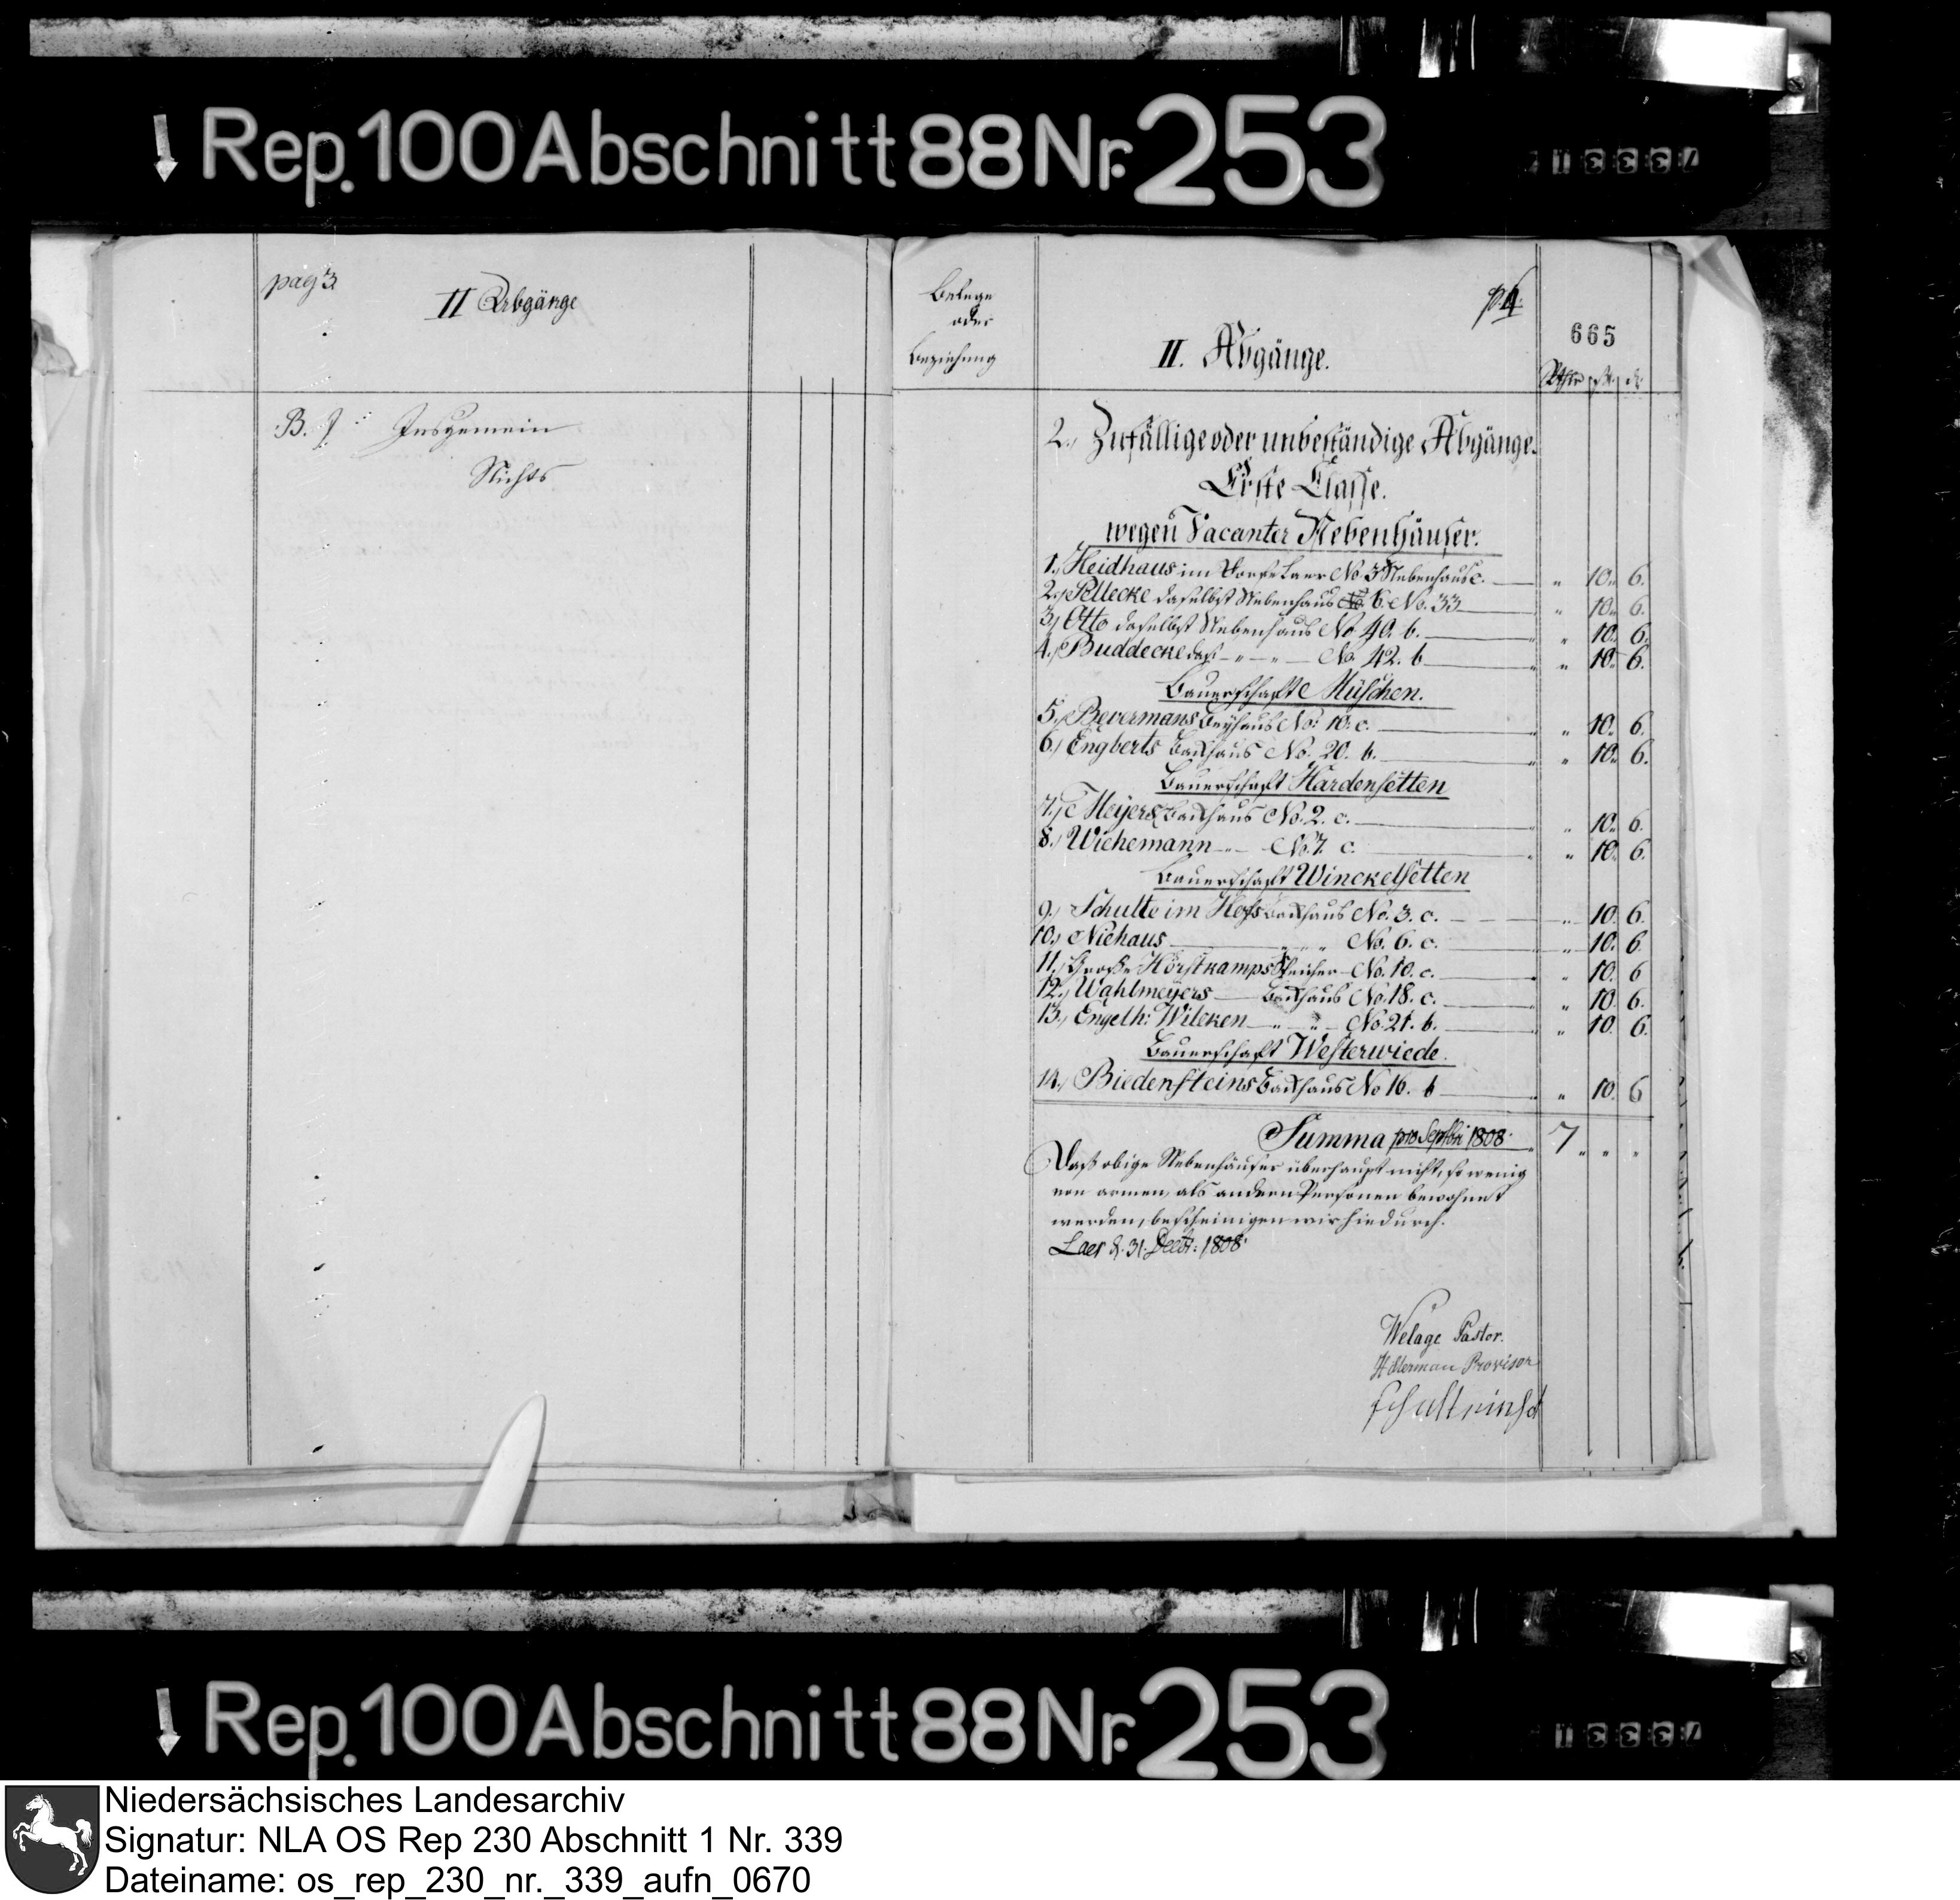 Rep. 100 Abschnitt 88 Nr. 253
pag 3
II Abgänge
B. J Insgemein
Nichts
Belege
oder
Beziehung
p. 4.
665
II. Abgänge.
Rthlr ß d
2., Zufällige oder unbeständige Abgänge.
Erste Classe.
wegen Vacanter Nebenhäuser.
1., Heidhaus im Dorfe Laer No. 3 Nebenhaus c. — " 10. 6.
2., Pellecke daselbst Nebenhaus b. No. 33 — " 10. 6.
3., Otto daselbst Nebenhaus No 40. b. — " 10. 6.
4., Buddecke das. — " — " — No. 42. b — " 10. 6.
Bauerschaft Müschen.
5., Bevermans Beyhaus No. 10. c. — " 10. 6.
6., Engberts Backhaus No. 20. b. — " 10. 6.
Bauerschaft Hardensetten
7., Meyers Backhaus No. 2. c. — " 10. 6.
8., Wichemann — " — No. 7. c. — " 10. 6.
Bauerschaft Winckelsetten
9., Schulte im Hofs Backhaus No. 3. c. — " 10. 6.
10., Niehaus — " " " No. 6. c. — " 10. 6
11., Große Hörstkamps Speicher — No. 10. c. — " 10. 6
12., Wahlmeyers — Backhaus No. 18. c. — " 10. 6.
13., Engelh: Wilcken — " — " — No. 21. b. — " 10. 6.
Bauerschaft Westerwiede.
14., Biedensteins Backhaus No 16. b — " 10. 6
Summa pro Septbr 1808. 7 " "
Daß obige Nebenhäuser überhaupt nicht, so wenig
von armen, als andern Personen bewohnet
werden, bescheinigen wir hiedurch.
Laer d. 31. Decbr: 1808.
Welage Pastor.
Provisor
Rep. 100 Abschnitt 88 Nr. 253
Niedersächsisches Landesarchiv
Signatur: NLA OS Rep 230 Abschnitt 1 Nr. 339
Dateiname: os_rep_230_nr._339_aufn_0670